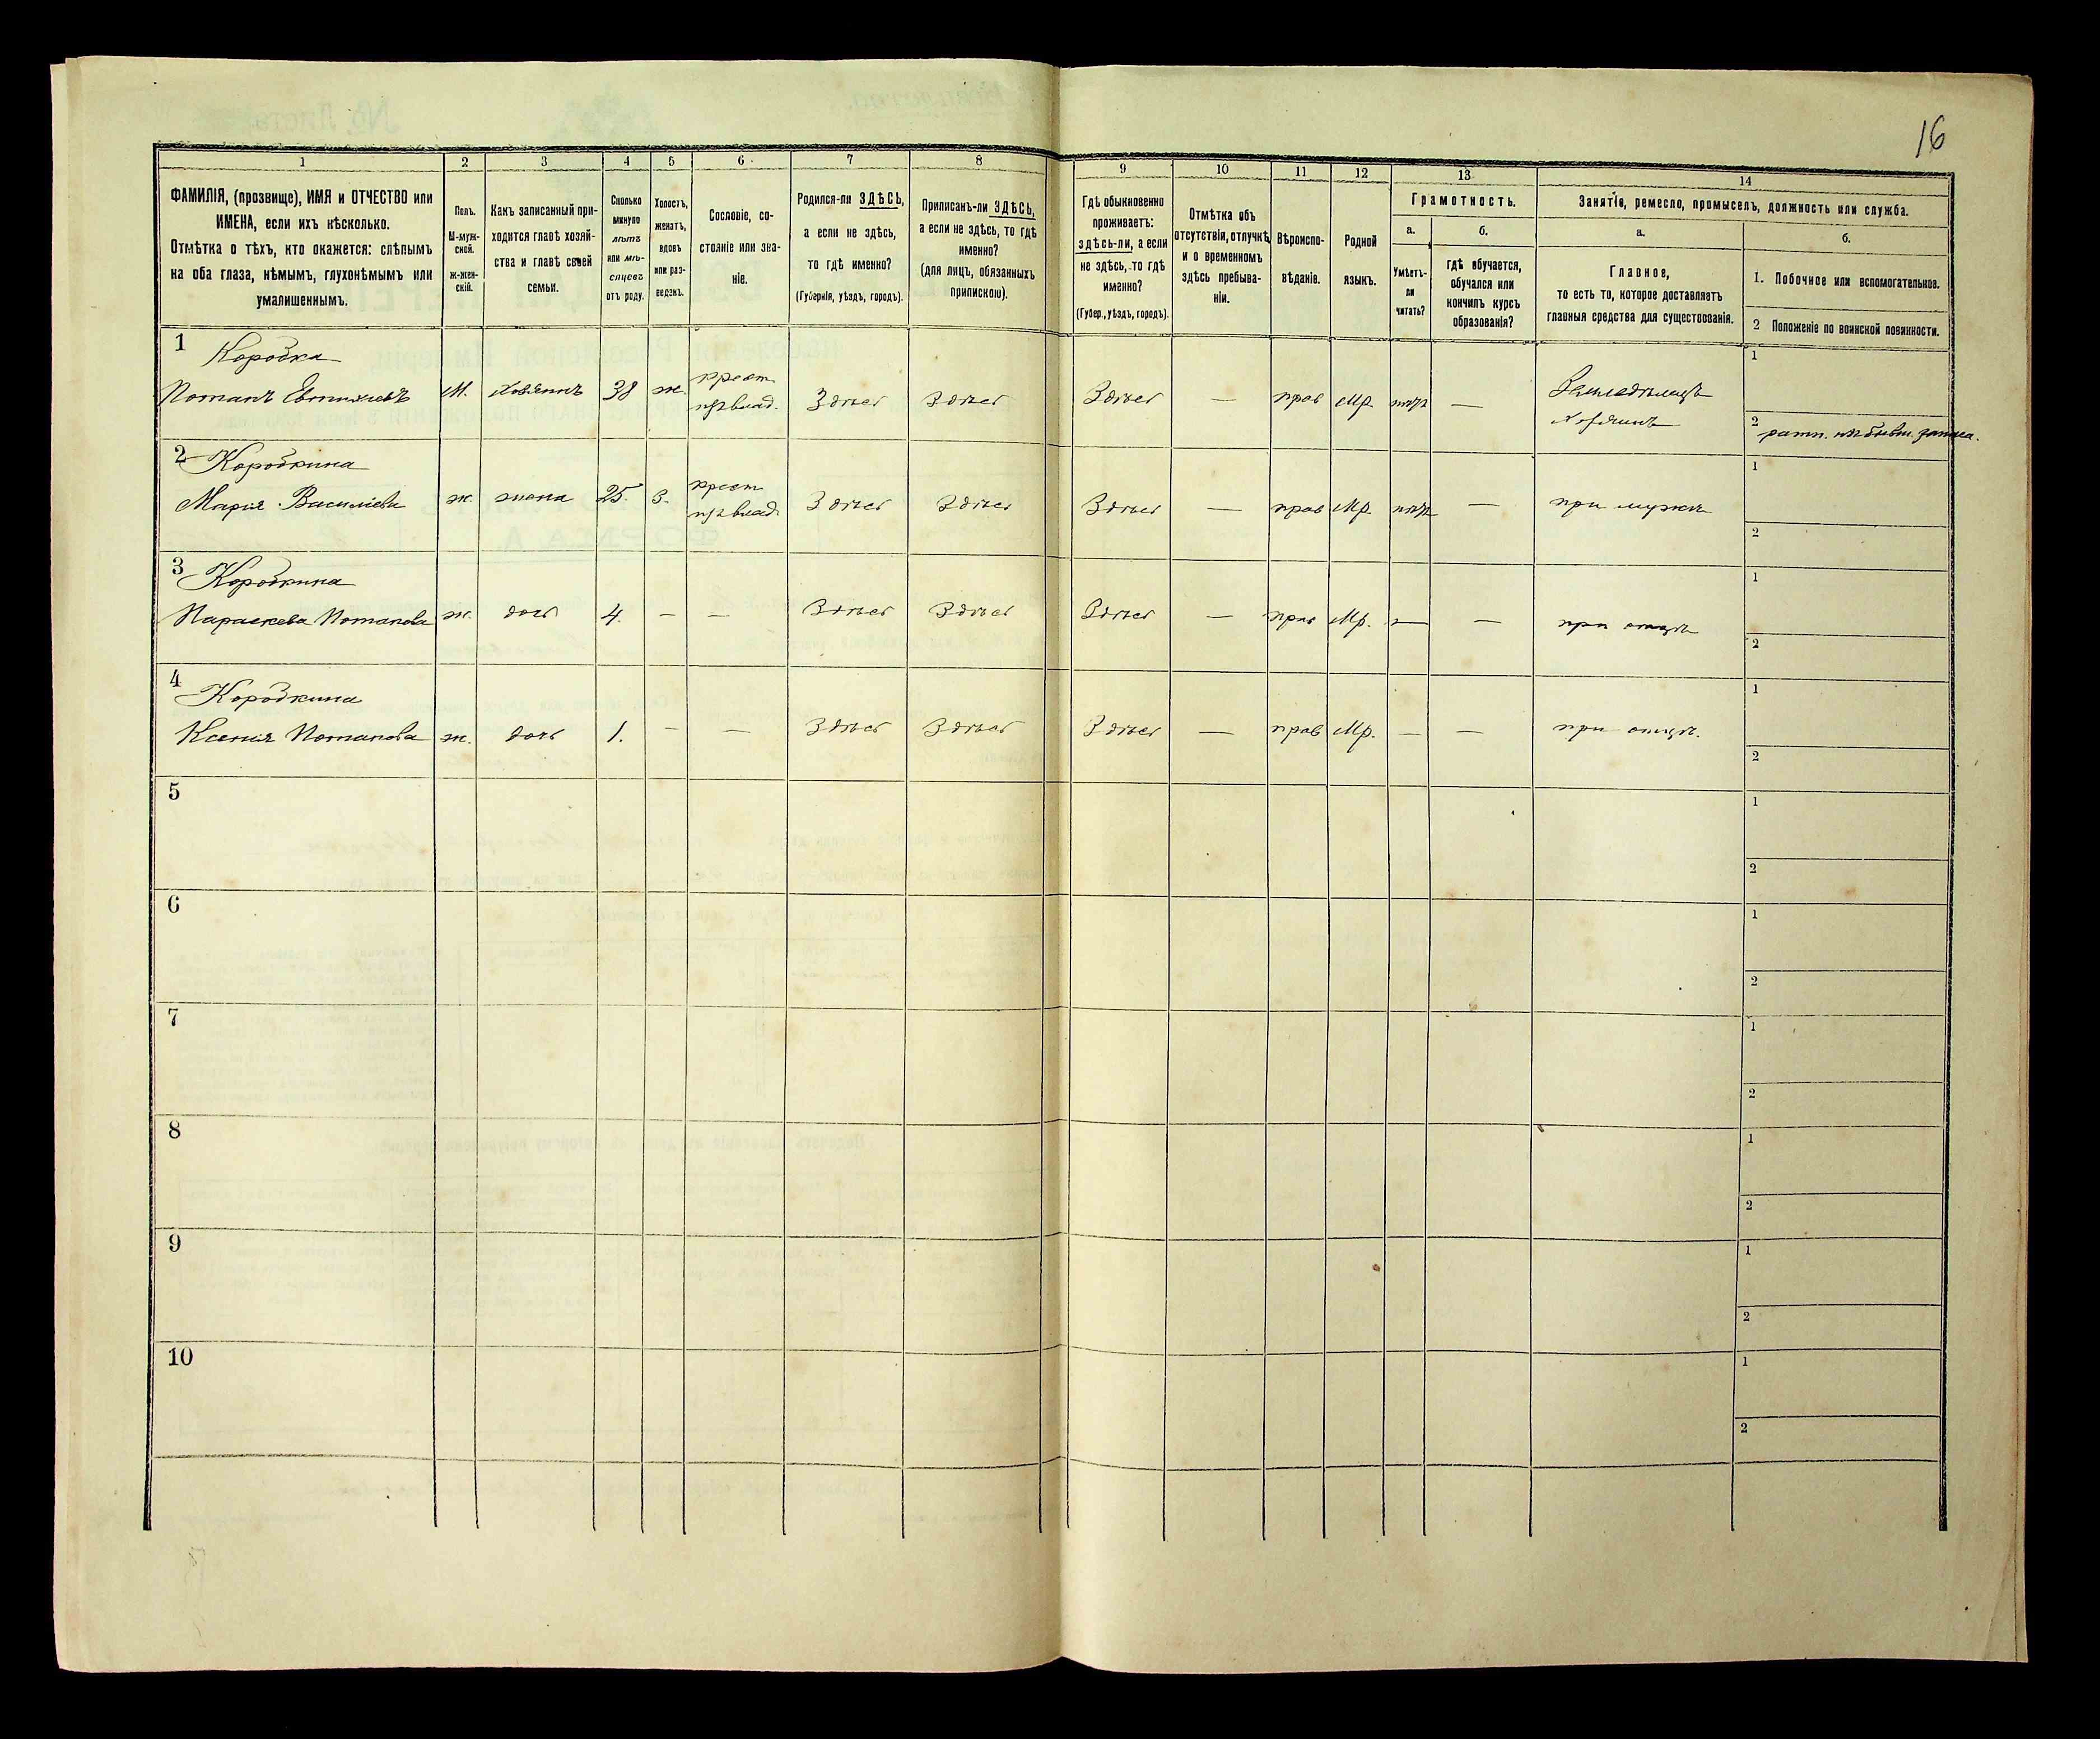 16
1 2 3 4 5 6 7 8 9 10 11 12 13 14
ФАМИЛІЯ, (прозвище), ИМЯ и ОТЧЕСТВО или
ИМЕНА, если ихъ нѣсколько.
Отмѣтка о тѣхъ, кто окажется: слѣпымъ
на оба глаза, нѣмымъ, глухонѣмымъ или
умалишеннымъ.
Полъ.
М-муж-
ской.
ж-жен-
скій.
Какъ записанный при-
ходится главѣ хозяй-
ства и главѣ своей
семьи.
Сколько
минуло
лѣтъ
или мѣ-
сяцевъ
отъ роду.
Холостъ,
женатъ,
вдовъ
или раз-
веденъ.
Сословіе, со-
стояніе или зва-
ніе.
Родился-ли ЗДѢСЬ,
а если не здѣсь,
то гдѣ именно?
(Губернія, уѣздъ, городъ).
Приписанъ-ли ЗДѢСЬ,
а если не здѣсь, то гдѣ
именно?
(для лицъ, обязанныхъ
припискою).
Гдѣ обыкновенно
проживаетъ:
здѣсь-ли, а если
не здѣсь, то гдѣ
именно?
(Губер., уѣздъ, городъ).
Отмѣтка объ
отсутствіи, отлучкѣ
и о временномъ
здѣсь пребыва-
ніи.
Вѣроиспо-
вѣданіе.
Родной
языкъ.
Грамотность.
а.
Умѣетъ-
ли
читать?
б.
гдѣ обучается,
обучался или
кончилъ курсъ
образованія?
Занятіе, ремесло, промыселъ, должность или служба.
а.
Главное,
то есть то, которое доставляетъ
главныя средства для существованія.
б.
1. Побочное или вспомогательное.
2 Положеніе по воинской повинности.
1 Коробка
Потапъ Евтихіевъ М. хозяинъ 38 ж. крест. Здѣсь Здѣсь Здѣсь — прав Мр нѣтъ — Земледѣлецъ
хозяинъ
1
2 запаса.
2 Коробкина
Марія Василіева ж. жена 25. з. крест Здѣсь Здѣсь Здѣсь — прав Мр. нѣтъ — при мужѣ
1
2
3 Коробкина
Параскева Потапова ж. дочь 4. — — Здѣсь Здѣсь Здѣсь — прав Мр. — — при отцѣ
1
2
4 Коробкина
Ксенія Потапова ж. дочь 1. — — Здѣсь Здѣсь Здѣсь — прав Мр. — — при отцѣ.
1
2
5
1
2
6
1
2
7
1
2
8
1
2
9
1
2
10
1
2